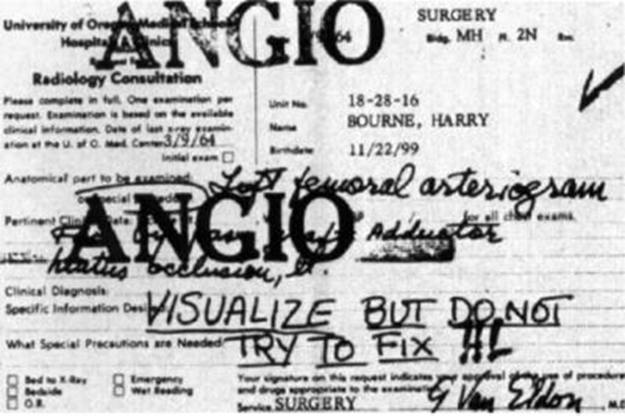 ANGIO
University of Oregon Medical School
Hospitals & Clinics
Radiology Consultation
Please complete in full. One examination per
request. Examination is based on the available
clinical information. Date of last x-ray examin-
ation at the U. of O. Med. Center 3/9/64
Initial exam
SURGERY
Bldg. MH Fl. 2N Rm.
64
Unit No. 18-28-16
Name BOURNE, HARRY
Birthdate 11/22/99
Anatomical part to be examined: Left femoral arteriogram
or special
for all chest exams.
ANGIO
Pertinent Clinical Data:
Adductor
hiatus occlusion,
Clinical Diagnosis:
Specific Information Desired VISUALIZE BUT DO NOT
What Special Precautions are Needed: TRY TO FIX !!!
Bed to X-Ray
Bedside
O.R.
Emergency
Wet Reading
Your signature on this request indicates your approval of the use of procedure
and drugs appropriate to the examination.
Service SURGERY
, M.D.